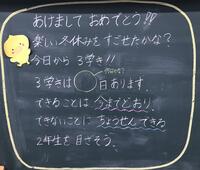 あけまして おめでとう!!
楽しい冬休みをすごせたかな?
今日から3学き!!
3学きは 日あります。
できることは 今までどおり、
できないことに ちょうせんできる
2年生を目ざそう。